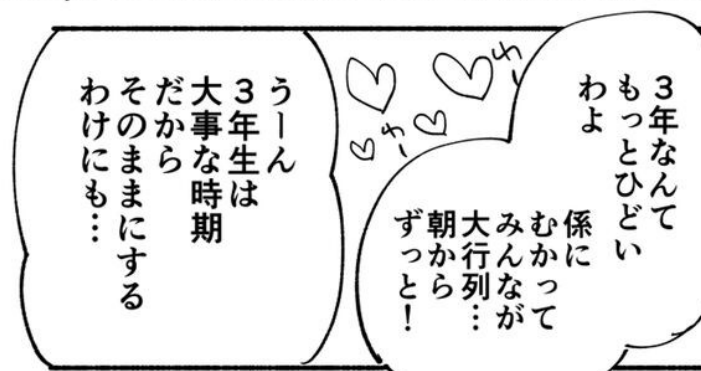 ３年なんて
もっとひどい
わよ
係に
むかって
みんなが
大行列…
朝から
ずっと！
キー
キー
うーん
３年生は
大事な時期
だから
そのままにする
わけにも…